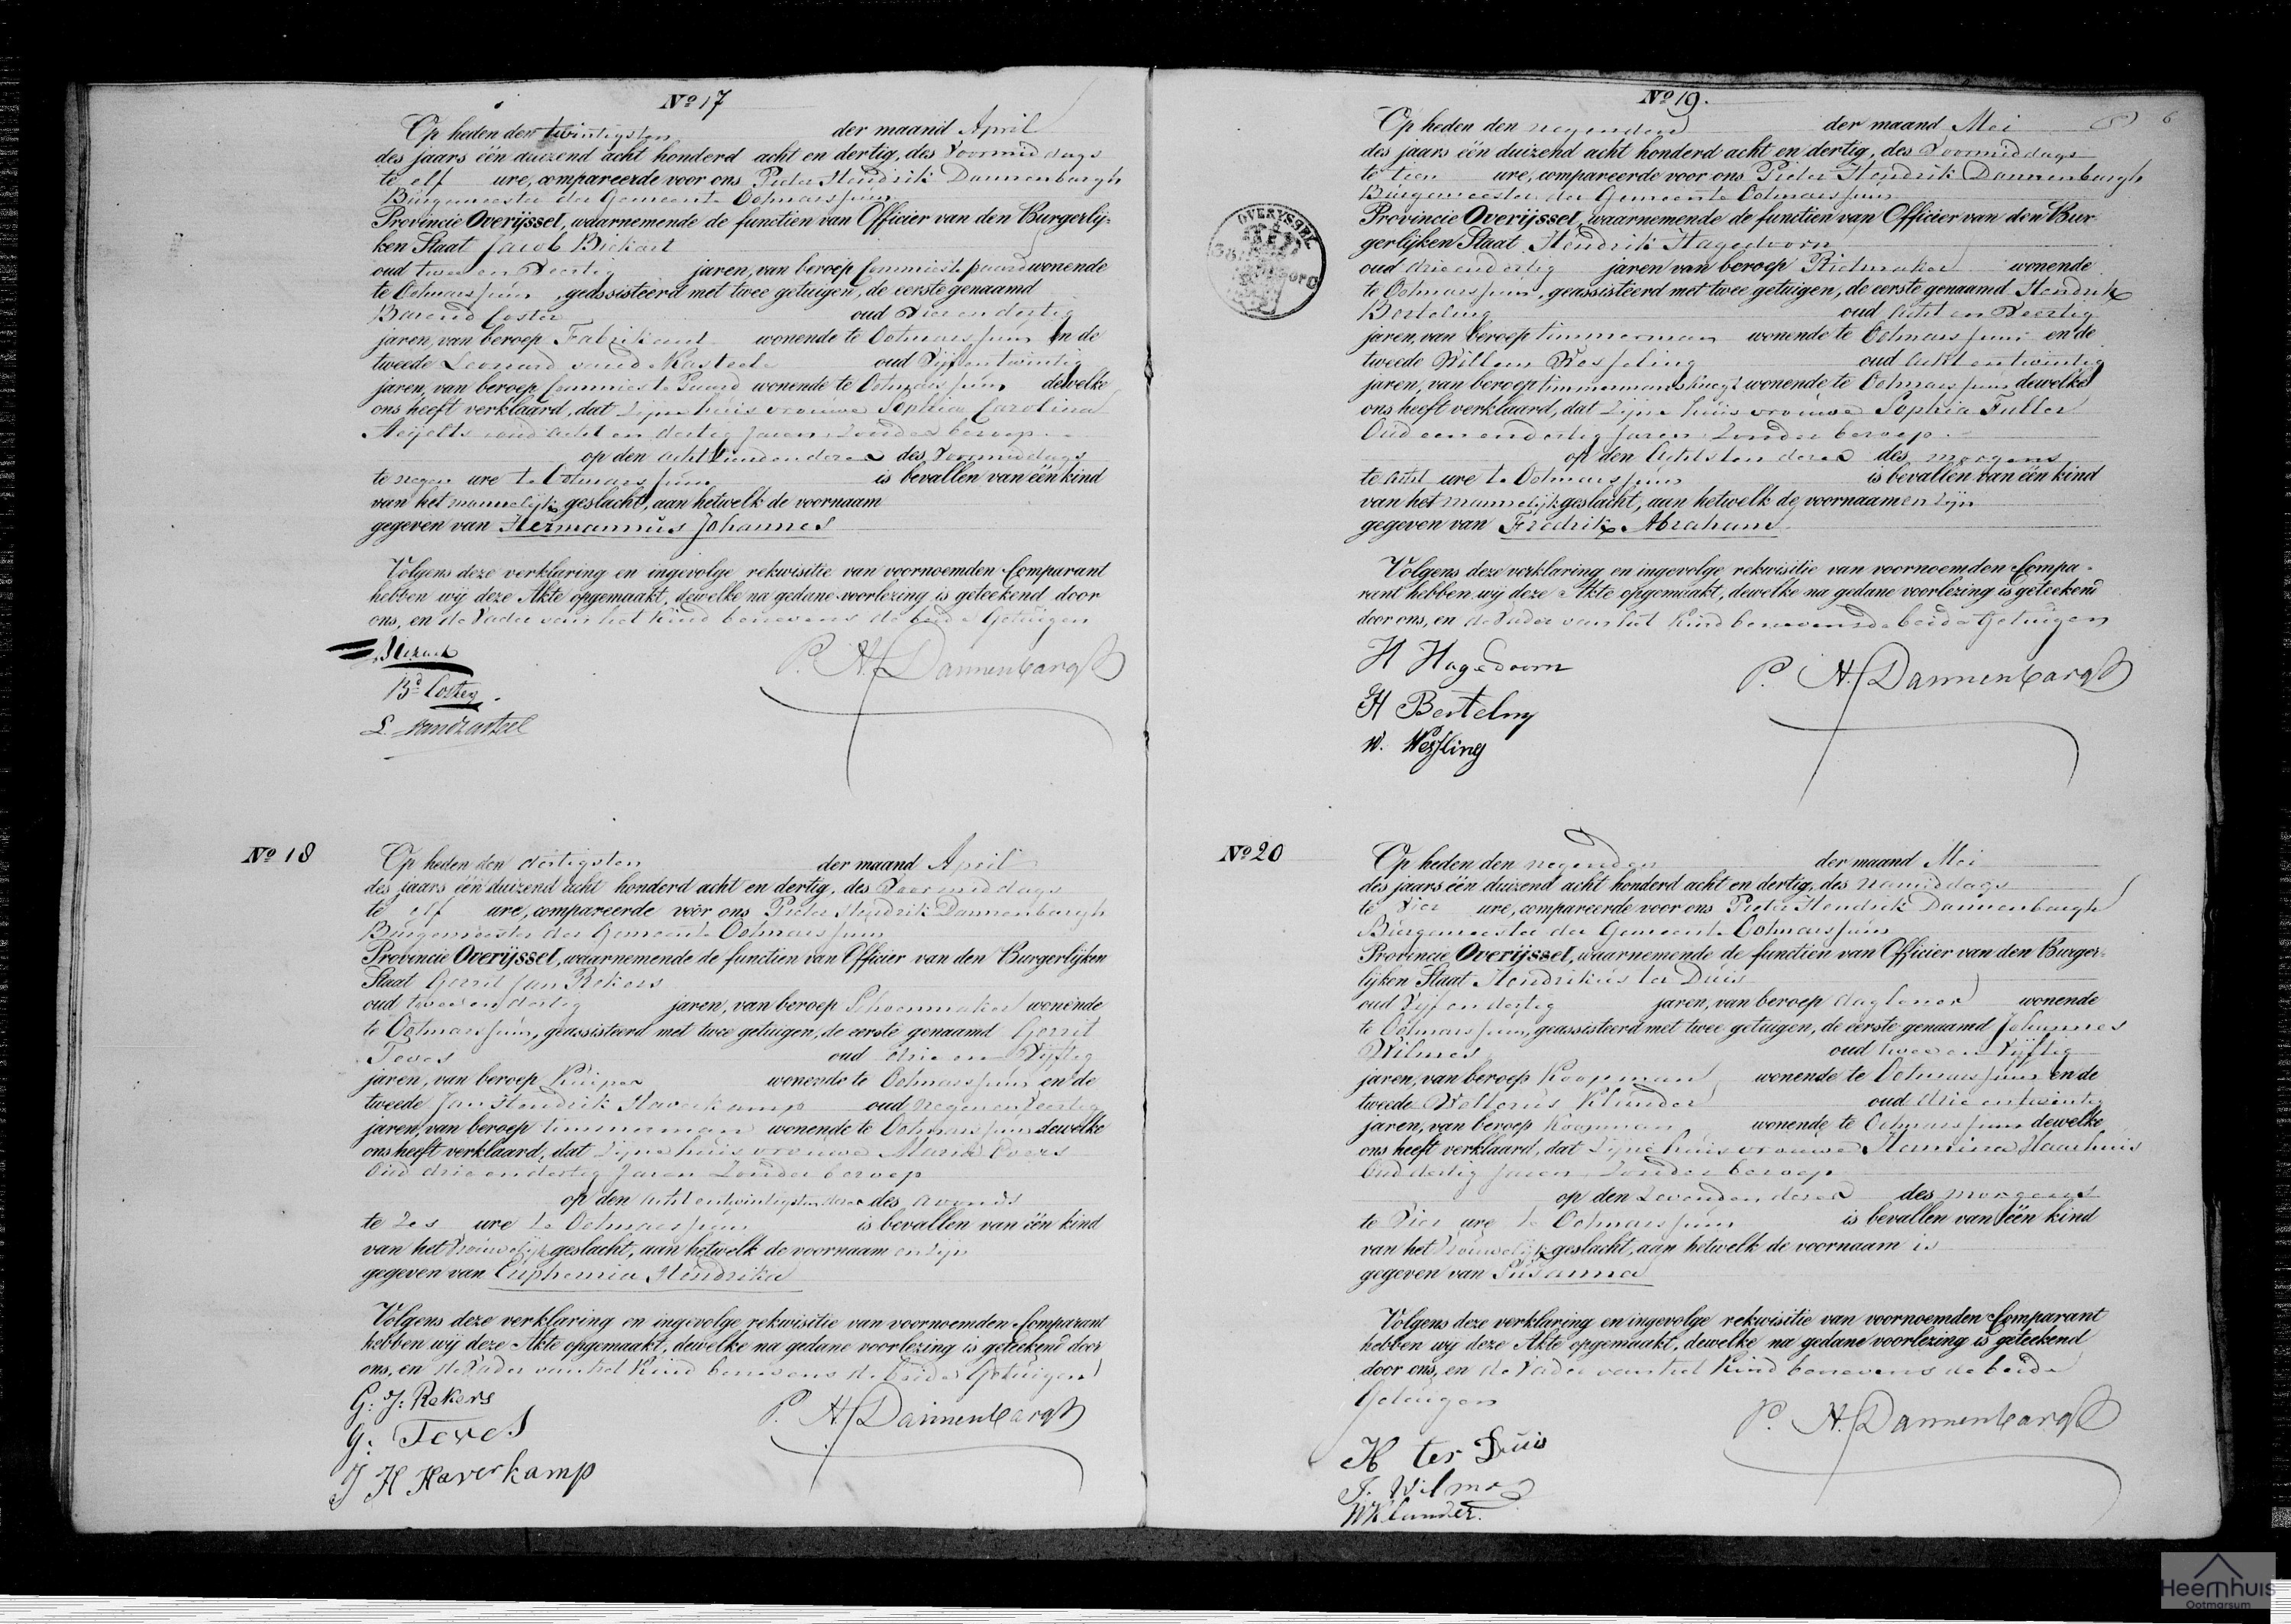 No 17
Op heden den twintigsten der maand April
des jaars één duizend acht honderd acht en dertig, des Voormiddags
te elf ure, compareerde voor ons Pieter Hendrik Dannenbargh
Burgemeester der Gemeente Ootmarssum
Provincie Overijssel, waarnemende de functien van Officier van den Burgerlij-
ken Staat Jacob
oud twee en Veertig jaren, van beroep Commies te paard wonende
te Ootmarssum, geassisteerd met twee getuigen, de eerste genaamd
Barend Coster oud Vier en dertig
jaren, van beroep Fabrikant wonende te Ootmarssum en de
tweede Leonard oud Vijf en twintig
jaren, van beroep Commies te Paard wonende te Ootmarssum dewelke
ons heeft verklaard, dat zijne huisvrouwe Sophia Carolina
oud acht en dertig jaren zonder beroep
op den achttienden dezer des Voormiddags
te negen ure te Ootmarssum is bevallen van één kind
van het mannelijk geslacht, aan hetwelk de voornaam
gegeven van Hermannus Johannes
Volgens deze verklaring en ingevolge rekwisitie van voornoemden Comparant
hebben wij deze Akte opgemaakt, dewelke na gedane voorlezing is geteekend door
ons, en de Vader van het Kind benevens de beide Getuigen
P. H. Dannenbargh
Bd Coster
No 18
Op heden den dertigsten der maand April
des jaars één duizend acht honderd acht en dertig, des Voormiddags
te elf ure, compareerde voor ons Pieter Hendrik Dannenbargh
Burgemeester der Gemeente Ootmarssum
Provincie Overijssel, waarnemende de functien van Officier van den Burgerlijken
Staat Gerrit Jan Rekers
oud twee en dertig jaren, van beroep Schoenmaker wonende
te Ootmarssum, geassisteerd met twee getuigen, de eerste genaamd Gerrit
Teves oud drie en Vijftig
jaren, van beroep Kuiper wonende te Ootmarssum en de
tweede Jan Hendrik Haverkamp oud negen en Veertig
jaren, van beroep timmerman wonende te Ootmarssum dewelke
ons heeft verklaard, dat zijne huisvrouwe Maria Evers
Oud drie en dertig Jaren Zonder beroep
op den acht en twintigsten dezer des avonds
te Zes ure te Ootmarssum is bevallen van één kind
van het Vrouwelijk geslacht, aan hetwelk de voornaam en zijn
gegeven van Euphemia Hendrika
Volgens deze verklaring en ingevolge rekwisitie van voornoemden Comparant
hebben wij deze Akte opgemaakt, dewelke na gedane voorlezing is geteekend door
ons, en de Vader van het Kind benevens de beide Getuigen
G: J: Rekers
P. H. Dannenbargh
G: Teves
J H Haverkamp
No 19.
6
Op heden den negenden der maand Mei
des jaars één duizend acht honderd acht en dertig, des Voormiddags
te tien ure, compareerde voor ons Pieter Hendrik Dannenbargh
Burgemeester der Gemeente Ootmarssum
Provincie Overijssel, waarnemende de functien van Officier van den Bur-
gerlijken Staat Hendrik Hagedoorn
oud drie en dertig jaren van beroep Rietmaker wonende
te Ootmarssum, geassisteerd met twee getuigen, de eerste genaamd Hendrik
Berteling oud acht en Veertig
jaren, van beroep timmerman wonende te Ootmarssum en de
tweede Willem Wesseling oud acht en twintig
jaren, van beroep timmermansknegt wonende te Ootmarssum dewelke
ons heeft verklaard, dat zijne huisvrouwe Sophia Fuller
Oud een en dertig Jaren Zonder beroep
op den Achtsten dezer des morgens
te acht ure te Ootmarssum is bevallen van één kind
van het mannelijk geslacht, aan hetwelk de voornaam en zijn
gegeven van Fredrik Abraham
Volgens deze verklaring en ingevolge rekwisitie van voornoemden Compa-
rant hebben wij deze Akte opgemaakt, dewelke na gedane voorlezing is geteekend
door ons, en de Vader van het Kind benevens de beide Getuigen
H Hagedoorn
P. H. Dannenbargh
H Berteling
W. Wessling
OVERYSSEL
No 20
Op heden den negenden der maand Mei
des jaars één duizend acht honderd acht en dertig, des namiddags
te Vier ure, compareerde voor ons Pieter Hendrik Dannenbargh
Burgemeester der Gemeente Ootmarssum
Provincie Overijssel, waarnemende de functien van Officier van den Burger-
lijken Staat Hendrikus ter Duis
oud Vijf en dertig jaren, van beroep daglener wonende
te Ootmarssum, geassisteerd met twee getuigen, de eerste genaamd Johannes
Wilmes oud twee en Vijftig
jaren, van beroep Koopman wonende te Ootmarssum en de
tweede Wolterus Klunder oud drie en twintig
jaren, van beroep Koopman wonende te Ootmarssum dewelke
ons heeft verklaard, dat zijne huisvrouwe Hermina Haarhuis
Oud dertig Jaren Zonder beroep
op den Zevenden dezer des morgens
te Vier ure te Ootmarssum is bevallen van één kind
van het Vrouwelijk geslacht, aan hetwelk de voornaam is
gegeven van Susanna
Volgens deze verklaring en ingevolge rekwisitie van voornoemden Comparant
hebben wij deze Akte opgemaakt, dewelke na gedane voorlezing is geteekend
door ons, en de Vader van het Kind benevens de beide
Getuigen
P. H. Dannenbargh
H ter Duis
J. Wilmes
W Klunder.
Heemhuis
Ootmarsum